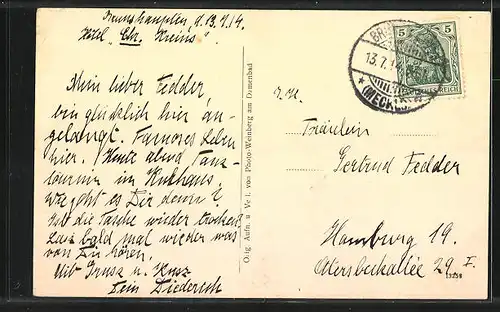 Brunshaupten, d. 13.7.14.
Hôtel "Chr. Kreins".
Mein lieber Fedder,
bin glücklich hier an-
gelangt. Famoses Leben
hier. Heute abend Tanz-
tournier im Kurhaus.
Wie geht es Dir denn?
Ist die Tasche wieder trocken?
Lass bald mal wieder was
von Dir hören.
Mit Gruss u. Kuss
Dein Diederich
Orig. Aufn. u. Verl. von Photo-Weinberg am Damenbad
BR
13.7.14
(MECKL
5 5
REICH
Fräulein
Gertrud Fedder
Hamburg 19.
Ottersbeckallee 29 I.